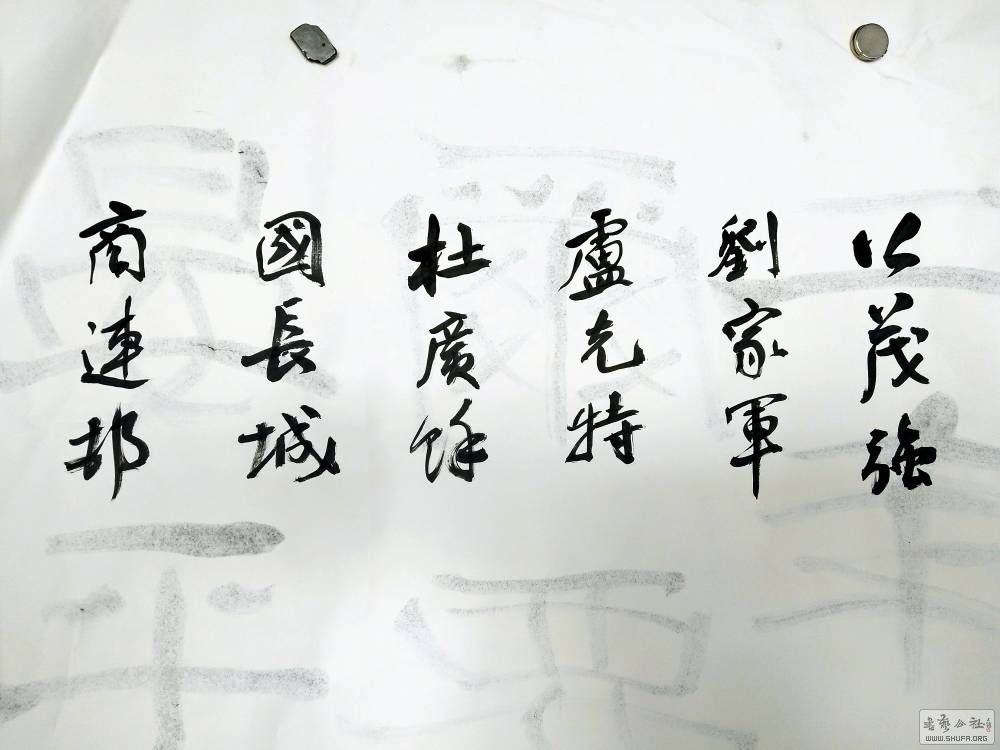 公茂強
劉家軍
盧克特
杜廣餘
國長城
商連邦
WWW.SHUFA.ORG